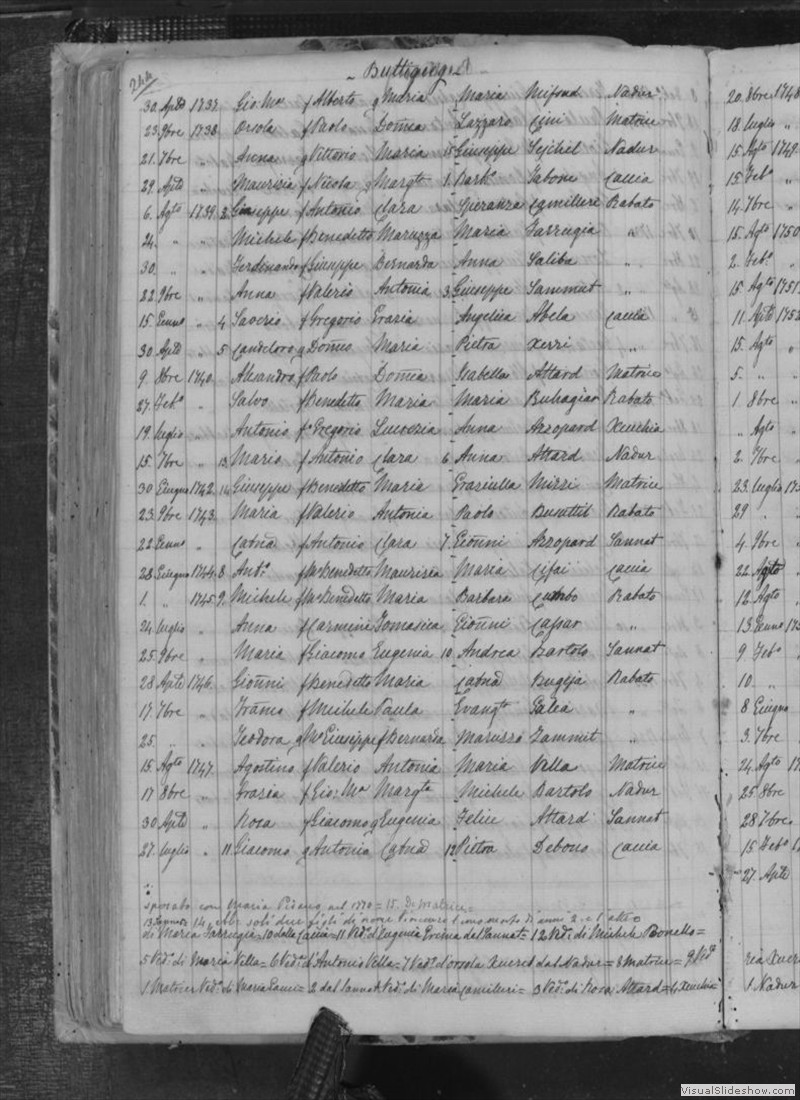 244
Buttigieg
30. Aple 1737. Gio: Ma. f Alberto g Maria Maria Mifsud Nadur
23. 9bre 1738. Orsola f Paolo Domca Lazzaro Cini Matrice
21. 7bre „ Anna g Vittorio Maria 15 Giuseppe Sejchel Nadur
29. Aple „ Maurizia f Nicola g Margta 1. Barba Tabone Caccia
6. Agto 1739. 2. Giuseppe f Antonio Clara Speranza Camilleri Rabato
24. „ „ Michele f Benedetto Maruzza Maria Farrugia „
30. „ „ Ferdinando f Giuseppe Bernarda Anna Saliba „
22. 9bre „ Anna f Valerio Antonia 3. Giuseppe Sammut „
15. Genno „ 4 Saverio f Gregorio Grazia Angelica Abela Caccia
30. Aple „ 5 Candeloro g Domco Maria Pietra Xerri „
9. 8bre 1740. Alesandro f Paolo Domca Isabella Attard Matrice
27. Febo „ Salvo f Benedetto Maria Maria Buhagiar Rabato
19. luglio „ Antonio f Gregorio Lucrezia Anna Azzopard Xeuchia
15. 7bre „ 13 Mario f Antonio Clara 6. Anna Attard Nadur
30 Giugno 1742. 14 Giuseppe f Benedetto Maria Graziulla Mizzi Matrice
23. 9bre 1743. Maria f Valerio Antonia Paolo Busuttil Rabato
22. Genno „ Catna f Antonio Clara 7. Gionni Azzopard Sannat
28. Giugno 1744. 8. Anto. f Mo Benedetto Maurizia Maria Cefai Caccia
1. „ 1745. 9. Michele f Mo Benedetto Maria Barbara Cutrbo Rabato
24. luglio „ Anna f Carmine Tomasica Gionni Cassar „
25. 9bre „ Maria f Giacomo Eugenia 10. Andrea Bartolo Sannat
28. Aple 1746. Gionni f Benedetto Maria Catna Bugeja Rabato
17. 7bre „ Franco f Michele Paula Evangta Galea „
25. „ „ Teodora g Mo Giuseppe f Bernarda Maruzzo Zammit „
15. Agto 1747. Agostino f Valerio Antonia Maria Vella Matrice
17 8bre „ Grazia f Gio: Ma Margta Michele Bartolo Nadur
30. Aple „ Rosa f Giacomo g Eugenia Felice Attard Sannat
27. luglio „ 11. Giacomo g Antonio Catna 12 Pietra Debono Caccia
sposato con Maria Pisano nel 1770 = 15. Di Matrice =
di Maria Farrugia = 10 della Caccia = 11 Ved. d'Eugenia Grima dal Sannat = 12 Ved. di Michele Bonello =
5 Ved. di Maria Vella = 6 Ved. d'Antonio Vella = 7 Ved. d'Orsola Xuereb dal Nadur = 8 Matrice = 9 Ved.
1 Matrice Ved. di Maria = 2 dal Sannat Ved. di Maria Camilleri = 3 Ved. di Rosa Attard = 4 Xeuchia =
20. 8bre 1748
18. luglio „
15. Agto 1749.
15. Febo „
14. 7bre „
15. Agto 1750
2. Febo. „
15. Agto 1751.
11. Aple 1752
15. Agto „
5. „ „
1. 8bre „
„ Agto „
2. 7bre „
23. luglio 175
29 „
4. 9bre „
22. Agto „
12. Agto „
13. Genno 175
9 Febo „
10. „
8 Giugno
3. 7bre „
24. Agto 17
25 8bre
28. 7bre „
15 Febo 17
27. Aple
1. Nadur
VisualSlideshow.com